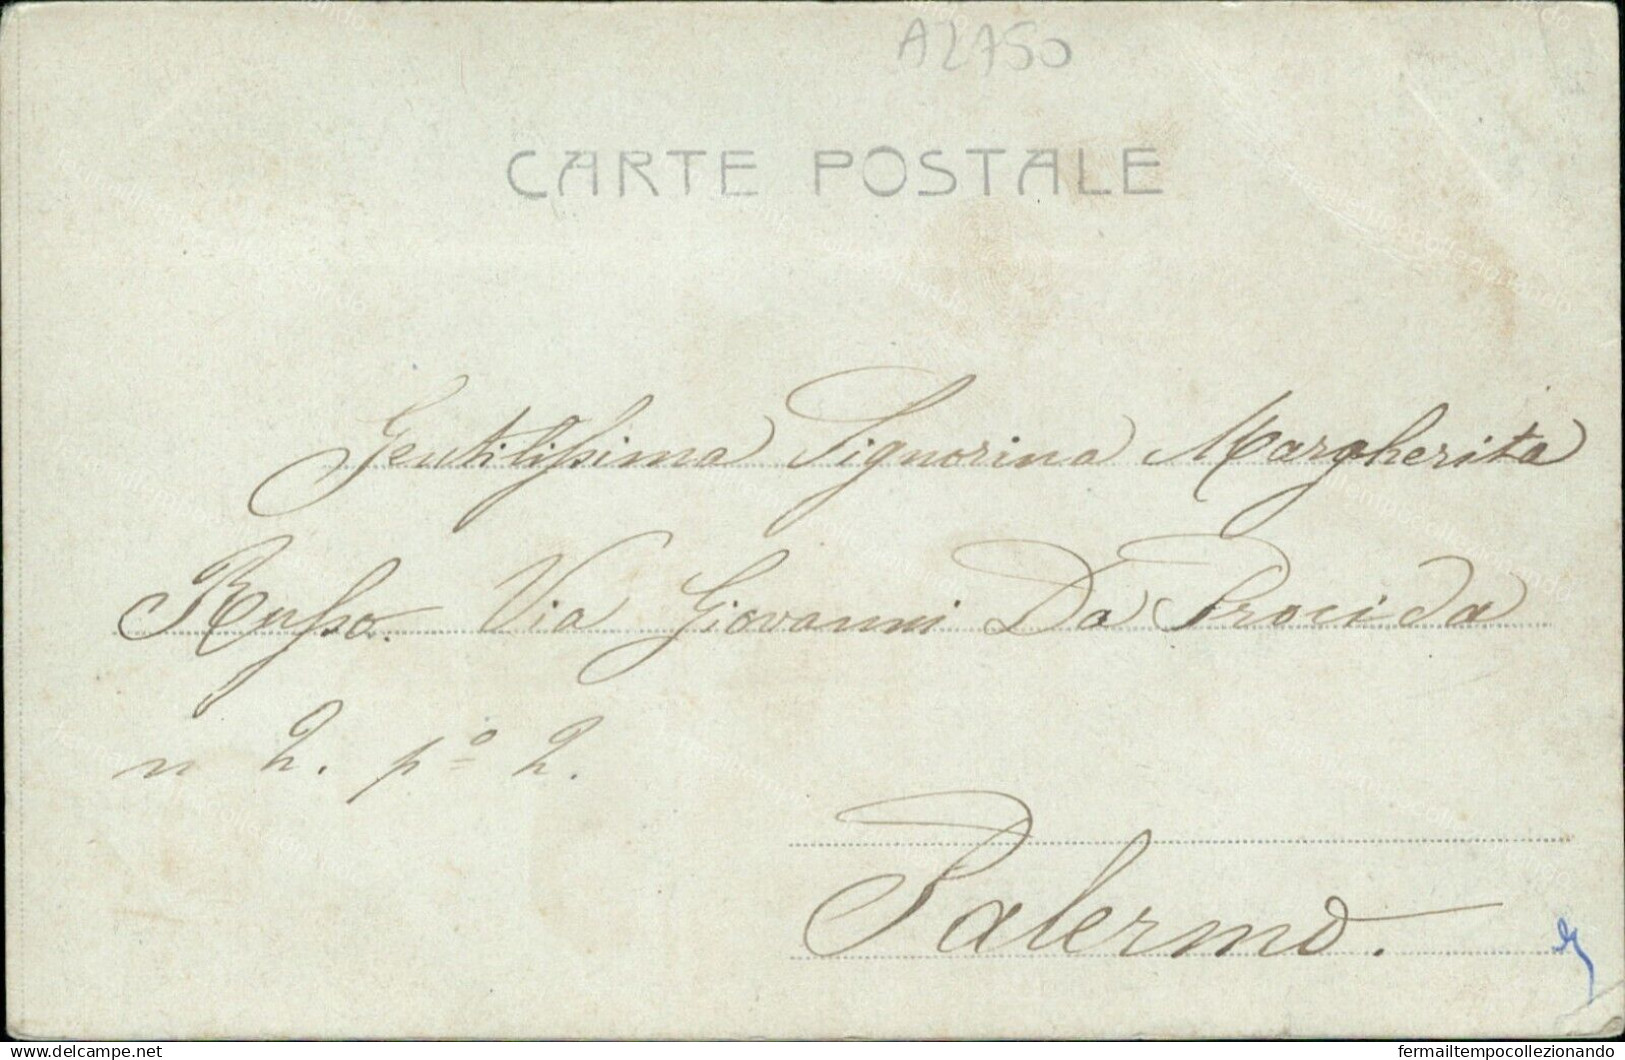 A2750
CARTE POSTALE
Gentilissima Signorina Margherita
Russo. Via Giovanni Da Procida
n 2. pº 2.
Palermo.
www.delcampe.net
fermailtempocollezionando